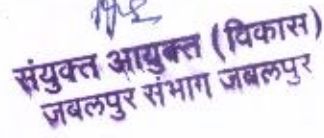 संयुक्त आयुक्त (विकास)
जबलपुर संभाग जबलपुर